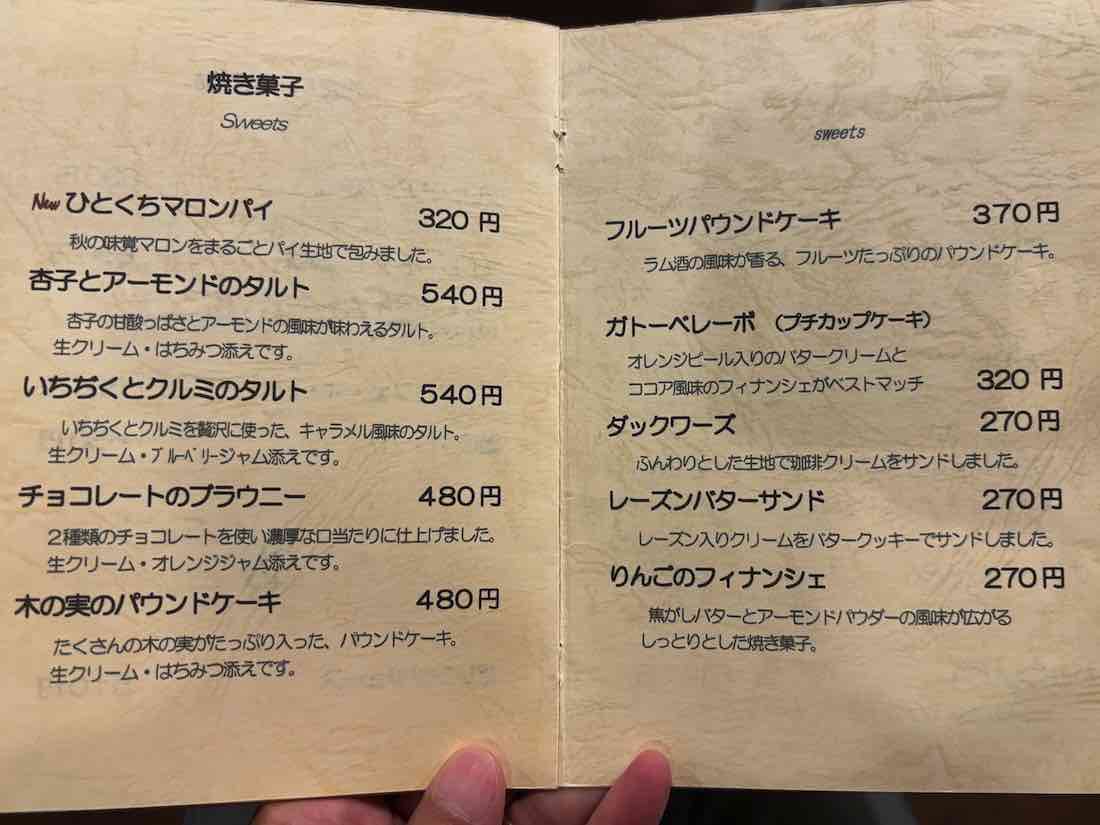 焼き菓子
Sweets
New ひとくちマロンパイ 320 円
秋の味覚マロンをまるごとパイ生地で包みました。
杏子とアーモンドのタルト 540 円
杏子の甘酸っぱさとアーモンドの風味が味わえるタルト。
生クリーム・はちみつ添えです。
いちぢくとクルミのタルト 540 円
いちぢくとクルミを贅沢に使った、キャラメル風味のタルト。
生クリーム・ブルーベリージャム添えです。
チョコレートのブラウニー 480 円
2種類のチョコレートを使い濃厚な口当たりに仕上げました。
生クリーム・オレンジジャム添えです。
木の実のパウンドケーキ 480 円
たくさんの木の実がたっぷり入った、パウンドケーキ。
生クリーム・はちみつ添えです。
sweets
フルーツパウンドケーキ 370 円
ラム酒の風味が香る、フルーツたっぷりのパウンドケーキ。
ガトーベレーボ (プチカップケーキ)
オレンジピール入りのバタークリームと
ココア風味のフィナンシェがベストマッチ 320 円
ダックワーズ 270 円
ふんわりとした生地で珈琲クリームをサンドしました。
レーズンバターサンド 270 円
レーズン入りクリームをバタークッキーでサンドしました。
りんごのフィナンシェ 270 円
焦がしバターとアーモンドパウダーの風味が広がる
しっとりとした焼き菓子。